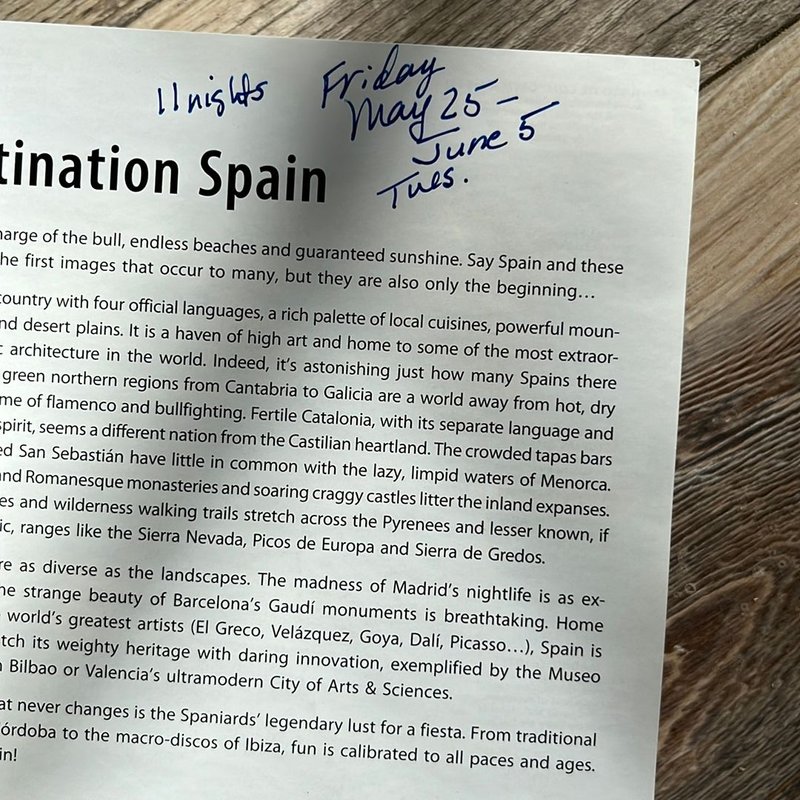 11 nights Friday
May 25 -
June 5
Tues.
tination Spain
harge of the bull, endless beaches and guaranteed sunshine. Say Spain and these
he first images that occur to many, but they are also only the beginning…
country with four official languages, a rich palette of local cuisines, powerful moun-
nd desert plains. It is a haven of high art and home to some of the most extraor-
c architecture in the world. Indeed, it’s astonishing just how many Spains there
green northern regions from Cantabria to Galicia are a world away from hot, dry
me of flamenco and bullfighting. Fertile Catalonia, with its separate language and
spirit, seems a different nation from the Castilian heartland. The crowded tapas bars
ed San Sebastián have little in common with the lazy, limpid waters of Menorca.
and Romanesque monasteries and soaring craggy castles litter the inland expanses.
es and wilderness walking trails stretch across the Pyrenees and lesser known, if
ic, ranges like the Sierra Nevada, Picos de Europa and Sierra de Gredos.
re as diverse as the landscapes. The madness of Madrid’s nightlife is as ex-
he strange beauty of Barcelona’s Gaudí monuments is breathtaking. Home
world’s greatest artists (El Greco, Velázquez, Goya, Dalí, Picasso…), Spain is
tch its weighty heritage with daring innovation, exemplified by the Museo
n Bilbao or Valencia’s ultramodern City of Arts & Sciences.
at never changes is the Spaniards’ legendary lust for a fiesta. From traditional
órdoba to the macro-discos of Ibiza, fun is calibrated to all paces and ages.
in!